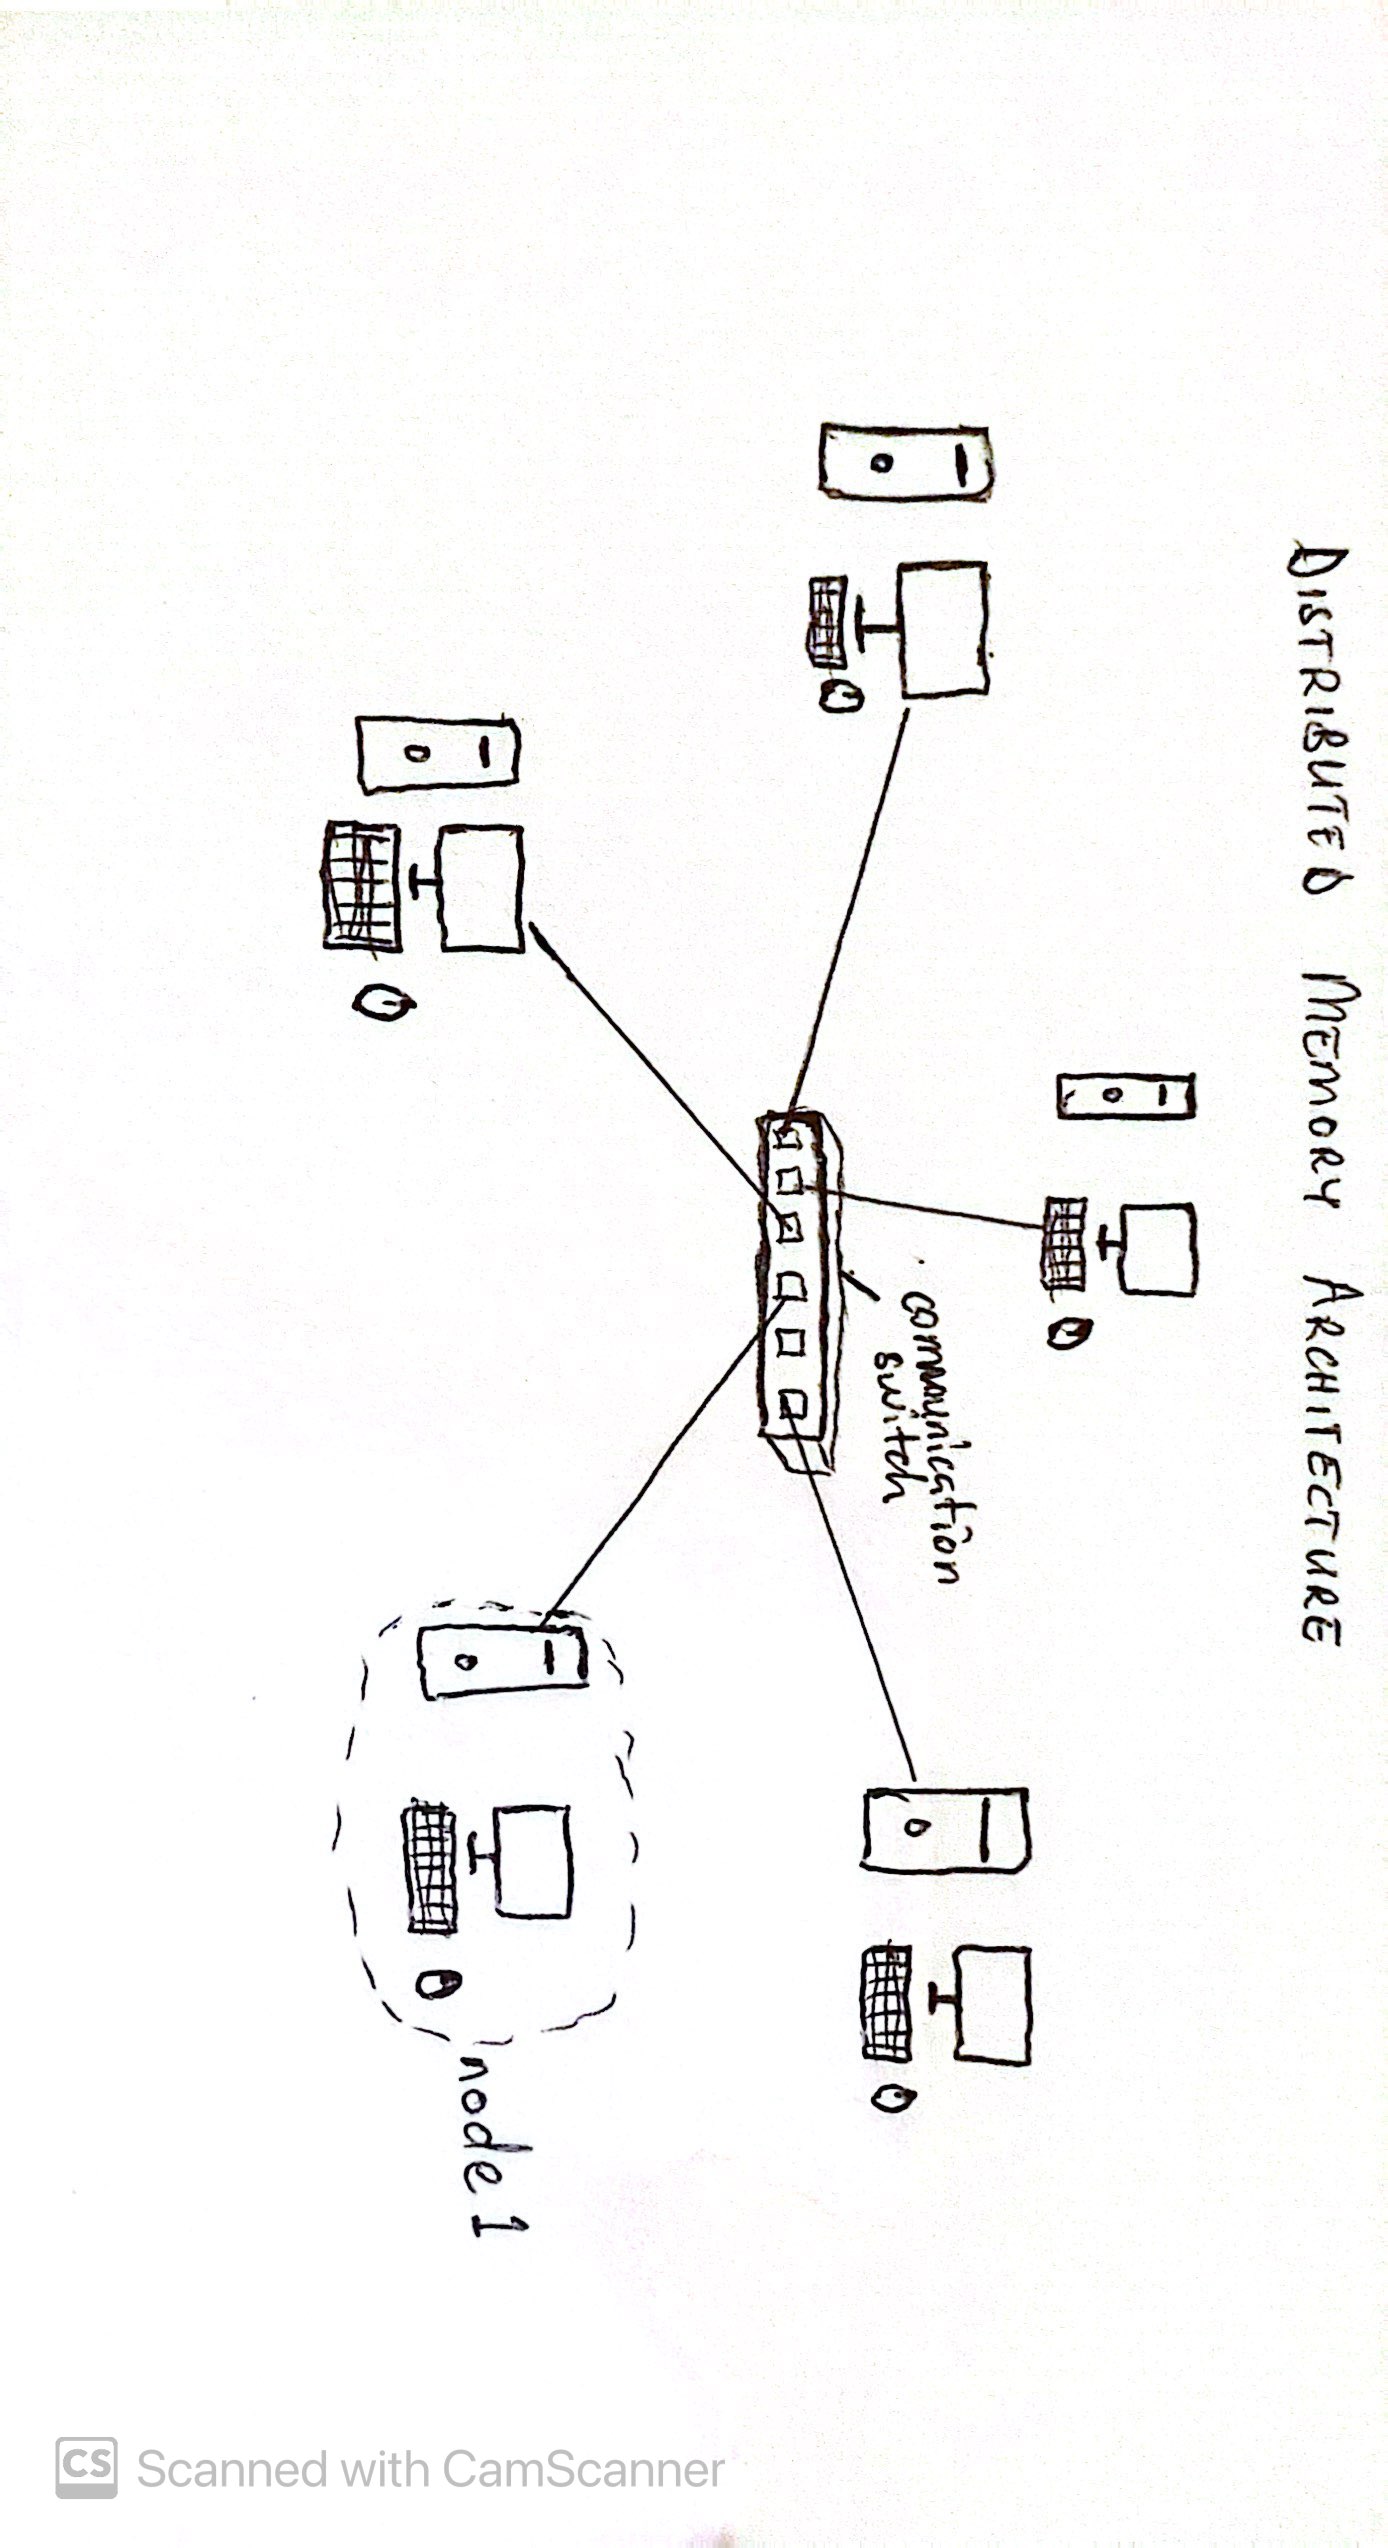 DISTRIBUTED MEMORY ARCHITECTURE
communication
switch
node 1
CS Scanned with CamScanner